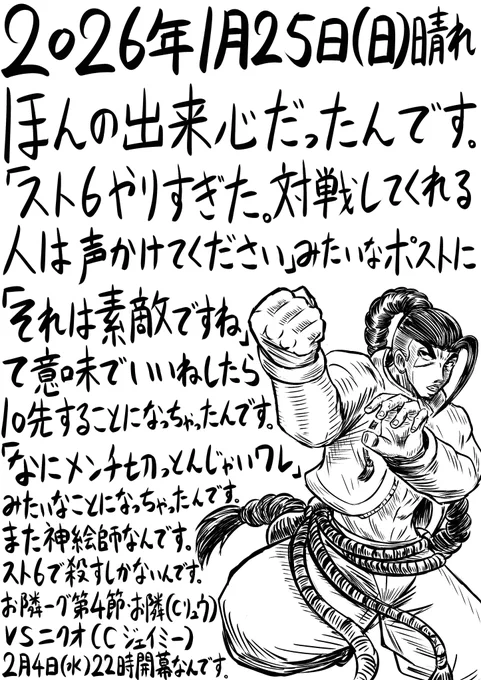 2026年1月25日(日)晴れ
ほんの出来心だったんです。
「スト6やりすぎた。対戦してくれる
人は声かけてください」みたいなポストに
「それは素敵ですね」
て意味でいいねしたら
10先することになっちゃったんです。
「なにメンチ切っとんじゃいワレ」
みたいなことになっちゃったんです。
また神絵師なんです。
スト6で殺すしかないんです。
お隣ーグ第4節・お隣(Cリュウ)
VSニクオ(Cジェイミー)
2月4日(水)22時開幕なんです。